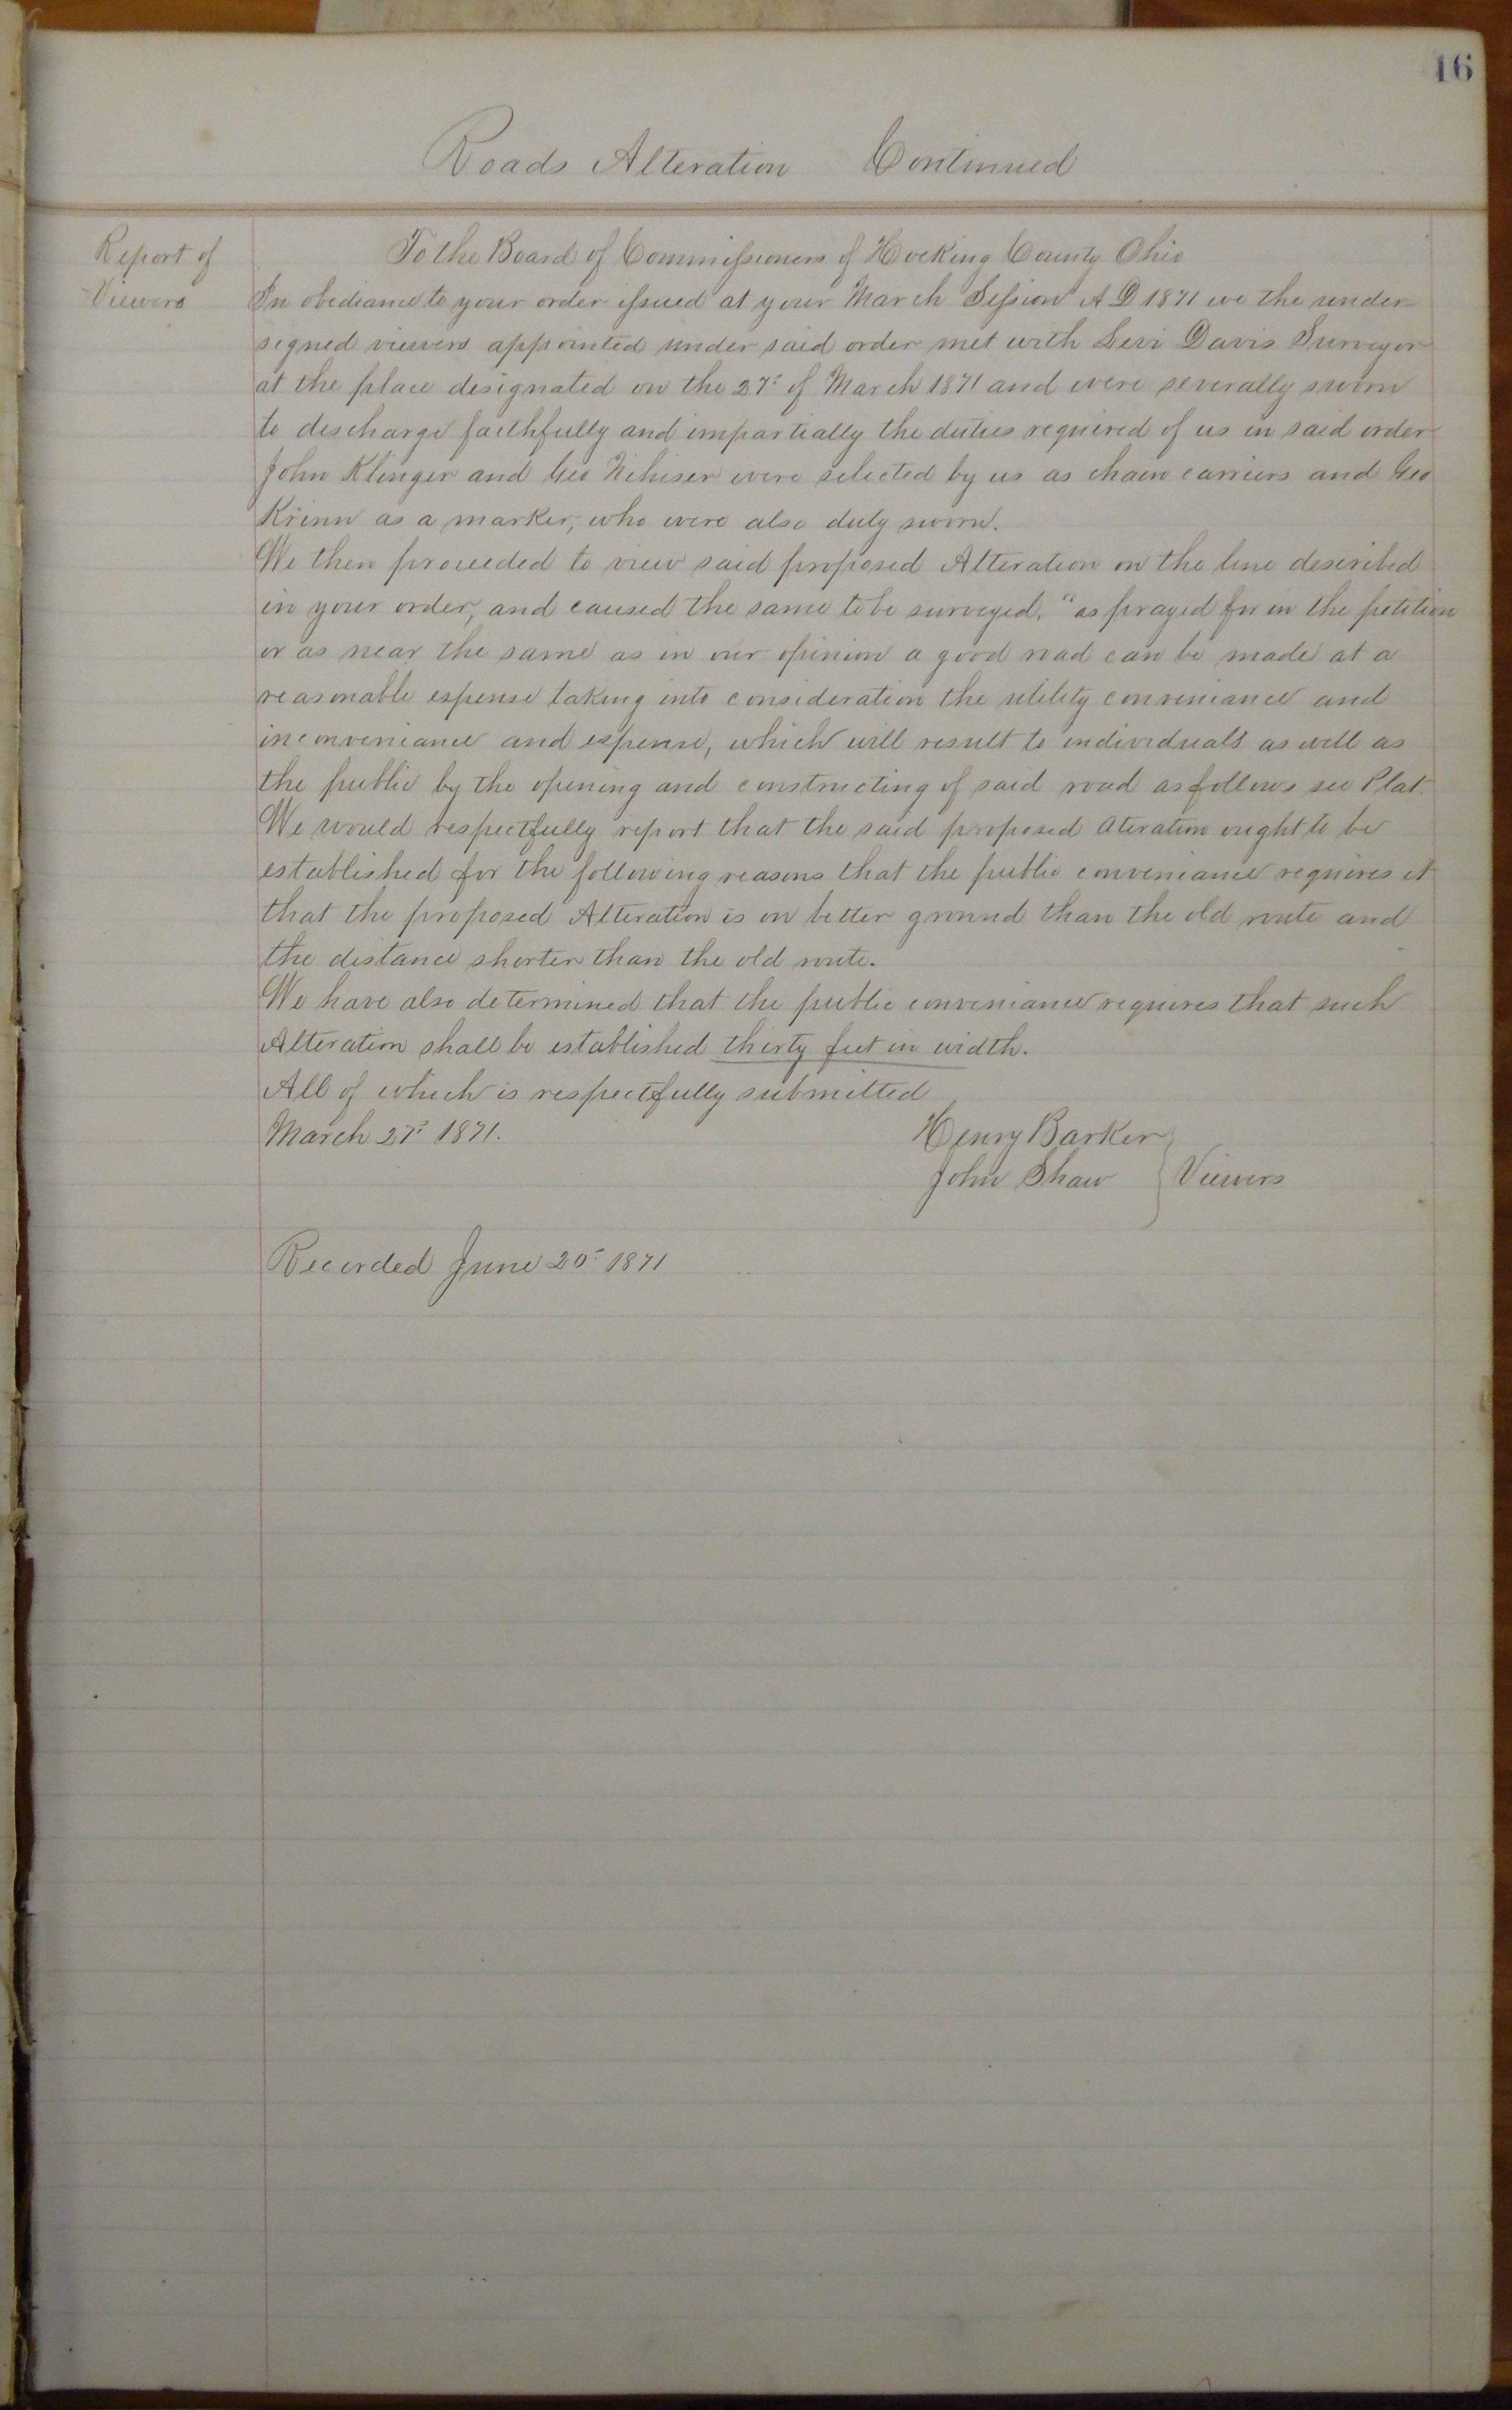 16
Roads Alteration Continued
Report of
Viewers
To the Board of Commissioners of Hocking County Ohio
In obediance to your order issued at your March Session A D 1871 we the under-
signed viewers appointed under said order met with Levi Davis Surveyor
at the place designated on the 27" of March 1871 and were severally sworn
to descharge faithfully and impartially the duties required of us in said order
John Klinger and Geo Nihiser were selected by us as chain carriers and Geo
Krinn as a marker, who were also duly sworn.
We then proceeded to view said proposed Alteration on the line described
in your order, and caused the same to be surveyed, "as prayed for in the petition
or as near the same as in our opinion a good road can be made at a
reasonable expense taking into consideration the utility conveniance and
inconveniance and expense, which will result to individuals as well as
the public by the opening and constructing of said road as follows see Plat.
We would respectfully report that the said proposed Ateration ought to be
established for the following reasons that the public conveniance requires it
that the proposed Alteration is on better ground than the old route and
the distance shorter than the old route.
We have also determined that the public conveniance requires that such
Alteration shall be established thirty feet in width.
All of which is respectfully submitted
March 27" 1871.
Henry Barker
John Shaw } Viewers
Recorded June 20" 1871